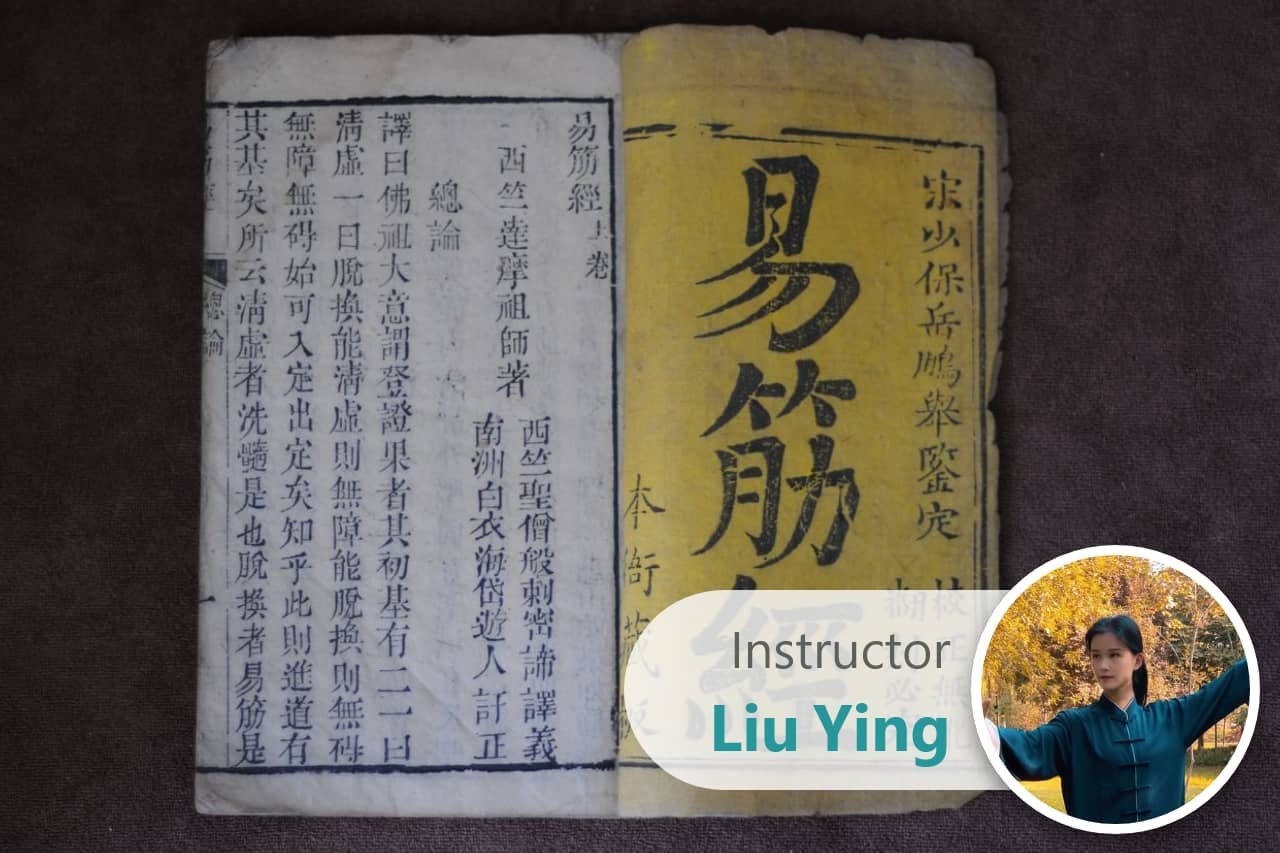 宋少保岳鵬舉鑒定
易筋經
本衙藏板
易筋經上卷
西竺達摩祖師著
西竺聖僧般刺密諦譯義
南洲白衣海岱遊人訂正
總論
譯曰佛祖大意謂登證果者其初基有二一曰
清虛一曰脫換能清虛則無障能脫換則無碍
無障無碍始可入定出定矣知乎此則進道有
其基矣所云清虛者洗髓是也脫換者易筋是
總論
一
Instructor
Liu Ying